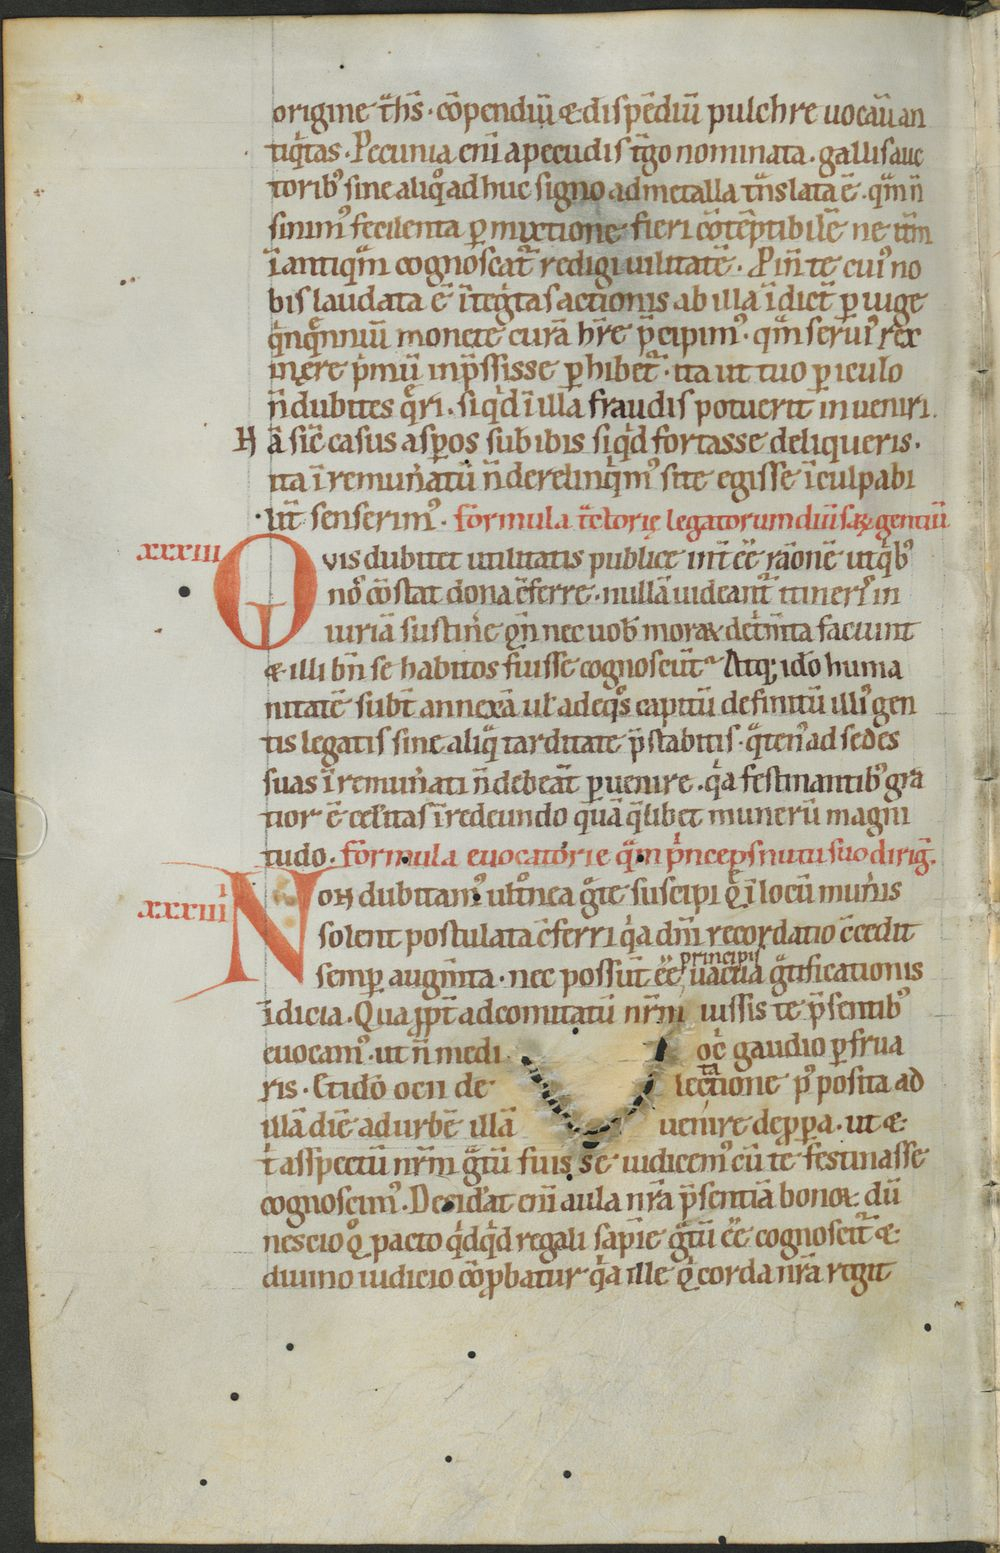 origine t̄hs̄. cōpendiū & dispēdiū pulchre uocaū an
tiqͥtas. Pecunia enī a pecudis t̄go nominata. gallis auc
toribꝰ sine aliqͦ adhuc signo ad metalla tͣnslata ē. qͣm ń
sinimꝰ feculenta ꝑ mixtione fieri cōtēptibilē ne itm̄
ī antiqͣm cognoscatᷣ redigi uilitatē. Pin̄ te cuiꝰ no
bis laudata ē ītegͥtas actionis ab illa īdict̄ ꝑ iuge
qͥnqͣenniū monete curā hr̄e p̄cipimꝰ. qͣm seruiꝰ rex
in ęre pͥmū inp̄ssisse ꝑhibetᷣ. ita ut tuo ꝑiculo
n̄ dubites qͣeri. si qͥd ī illa fraudis potuerit inueniri.
H ā sic̄ casus asꝑos subibis si qͥd fortasse deliqueris.
ita īremun̓atū n̄ derelinqͥmꝰ si te egisse īculpabi
lit̄ senserimꝰ. formula t̄ctorię legatorum diūsaꝝ gentiū
xxxiii QVIS dubitet utilitatis publicę int̄ ēē rāonē ut qͥbꝰ
nōs cōstat dona c̄ferre. nullā uideantᷣ itineris in
iuriā sustin̄e qn̄ nec uob̄ moraꝝ det̓m̄ta faciunt
& illi bn̄ se habitos fuisse cognoscūt. Atq; ido huma
nitatē subt̄ annexā ul̓ ad eqͦs capitū definitū illiꝰ gen
tis legatis sine aliqͣ tarditate p̄stabitis. qͣtenꝰ ad sedes
suas īremun̓ati n̄ debeāt ꝑuenire. qͥa festinantibꝰ gra
tior ē cel̓itas ī redeundo quā qͣlibet munerū magni
tudo. formula euocatorie qͣm pͥnceps nutu suo dirig̃.
xxxiiii NON dubitamꝰ ult̊nea gͣte suscipi q̄ ī locū mun̓is
solent postulata c̄ferri qͥa dn̄i recordatio c̄cedit
semꝑ augm̄ta. nec possūt ēē principis uacua gͣtificationis
īdicia. Qua ꝓpt̄ ad comitatū nr̄m iussis te p̄sentibꝰ
euocamꝰ. ut n̄ medi oc̓ gaudio ꝑfrua
ris. Et ido oc̄n de lectatione pͥposita ad
illā diē ad urbē illā uenire deꝓꝑa. ut &
t̄ asspectū nr̄m gͣtū fuis se iudicemꝰ cū te festinasse
cognoscimꝰ. Desid̓at enī aula nr̄a p̄sentiā bonoꝝ dū
nescio qͦ pacto qͥdqͥd regali sapīe gͣtū ēē cognoscitᷣ &
diuino iudicio cōꝓbatur qͥa ille qͥ corda nr̄a regit